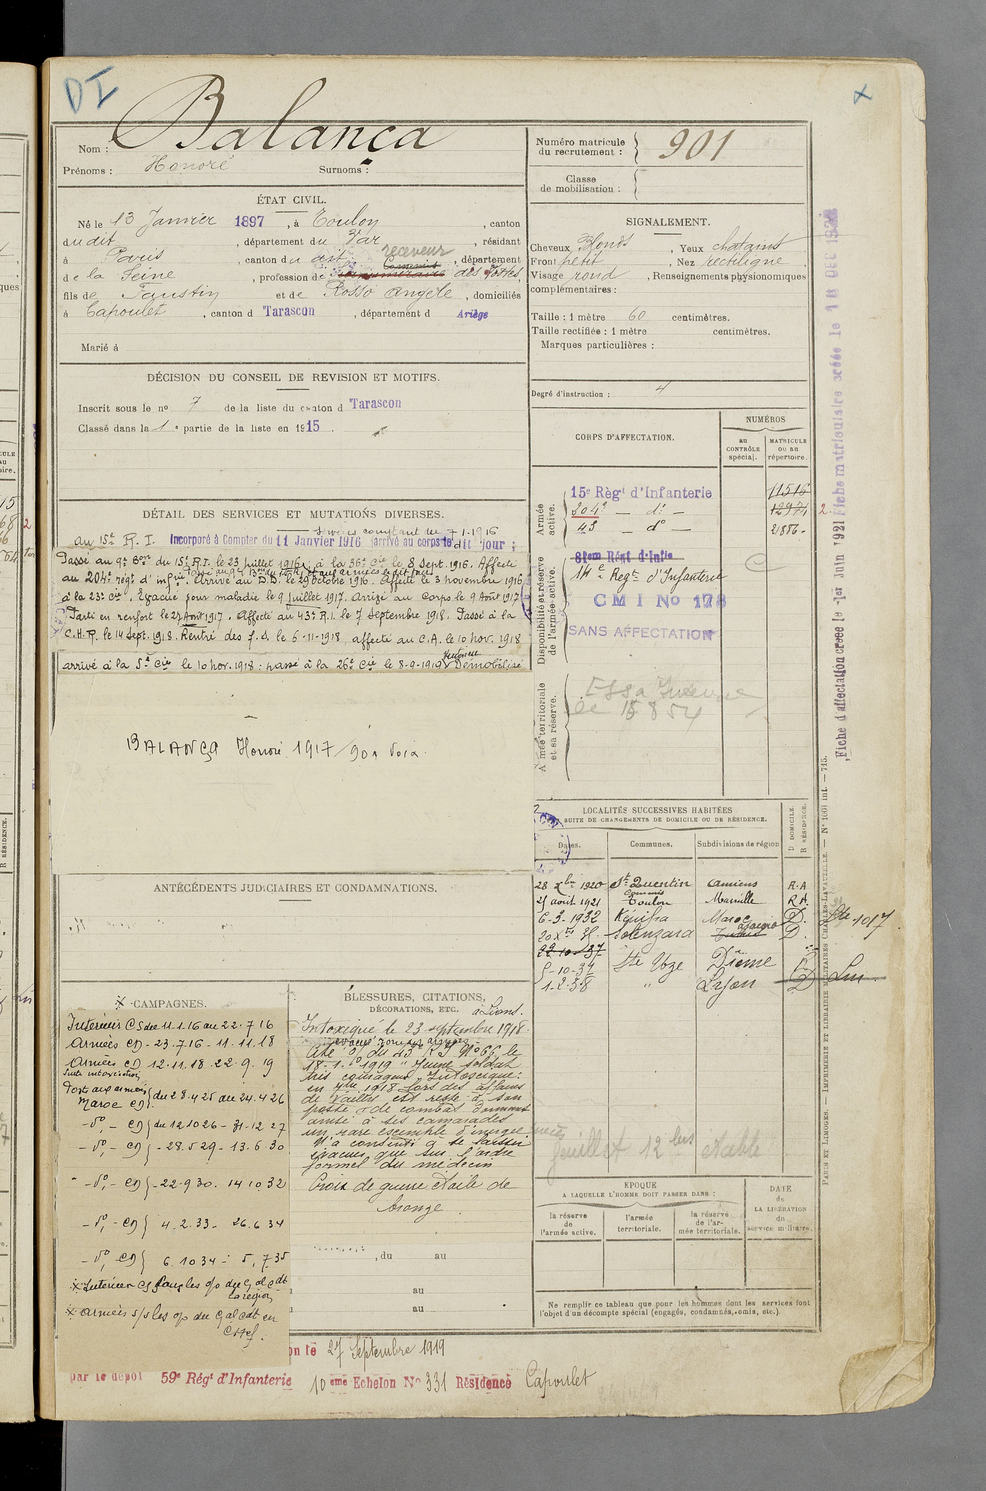 DI
Nom : Balança
Prénoms : Honoré Surnoms :
Numéro matricule du recrutement : 901
Classe de mobilisation :
ÉTAT CIVIL.
Né le 13 Janvier 1897, à Toulon, canton
du dit, département du Var, résidant
à Paris, canton du dit, département
receveur
Commis
de la Seine, profession de surnuméraire des Postes,
fils de Faustin et de Rosso Angèle, domiciliés
à Capoulet, canton d Tarascon, département d Ariège
Marié à
SIGNALEMENT.
Cheveux Blonds, Yeux chatains
Front petit, Nez rectiligne
Visage rond, Renseignements physionomiques
complémentaires :
Taille : 1 mètre 60 centimètres.
Taille rectifiée : 1 mètre centimètres.
Marques particulières :
Degré d'instruction : 4
DÉCISION DU CONSEIL DE REVISION ET MOTIFS.
Inscrit sous le no 7 de la liste du canton d Tarascon
Classé dans la 1e partie de la liste en 1915.
DÉTAIL DES SERVICES ET MUTATIONS DIVERSES.
Services comptant du 7-1-1916
au 15e R. I. Incorporé à Compter du 11 Janvier 1916 arrivé au corps le dit jour ;
Passé au 9e Bon du 15e R.I. le 23 juillet 1916, à la 36e Cie le 8 Sept. 1916. Affecté
au 204e régt d'infie. Arrivé au D.D. le 29 octobre 1916. Affecté le 3 novembre 1916
à la 23e Cie. Evacué pour maladie le 9 juillet 1917. Arrivé au Corps le 9 Août 1917
Parti en renfort le 27 Août 1917. Affecté au 43e R.I. le 7 Septembre 1918. Passé à la
C.H.R. le 14 Sept. 1918. Rentré des J.S. le 6-11-1918, affecté au C.A. le 10 nov. 1918
arrivé à la 5e Cie le 10 nov. 1918 : passé à la 26e Cie le 8-9-1919 Démobilisé
BALANÇA Honoré 1917/901 Foix.
CORPS D'AFFECTATION.
NUMÉROS
AU CONTRÔLE spécial.
MATRICULE OU AU répertoire.
Armée active.
15e Régt d'Infanterie 11516
204e — do — 12971
43 — do — 21856
Disponibilité et réserve de l'armée active.
81eme Régt d'Infie
14e Regt d'Infanterie
CMI No 178
SANS AFFECTATION
Armée territoriale et sa réserve.
le 15 8 54
Fiche d'affectation créée le 1er Juin 1921
Fiche matriculaire créée le 18 DEC
LOCALITÉS SUCCESSIVES HABITÉES
SUITE DE CHANGEMENTS DE DOMICILE OU DE RÉSIDENCE.
Dates. Communes. Subdivisions de région D DOMICILE. R RÉSIDENCE.
28 Xbre 1920 St Quentin Amiens R.A
Commis
25 août 1921 Toulon Marseille R A.
6-3-1932 Kénifra Maroc D.
20 Xbre Solenzara Ajaccio D
22-10-37
5-10-37 Ste Uze Drôme
1.2.58 " Lyon D
ANTÉCÉDENTS JUDICIAIRES ET CONDAMNATIONS.
CAMPAGNES.
Intérieur CS du 11.1.16 au 22.7.16
Armées CD - 23.7.16 - 11.11.18
Armées CD 12.11.18 22.9.19
Suite intoxication
Port aux armées
Maroc CD. du 28.4.25 au 24.4.26
- do - CD du 12 10 26 - 31-12 27
- do - CD - 28.5 29 - 13.6 30
- do - CD - 22.9 30. 14 10 32
- do - CD 4.2.33 - 26.6 34
- do - CD 6.10 34 - 5.7 35
BLESSURES, CITATIONS, DÉCORATIONS, ETC.
Intoxiqué le 23 septembre 1918
Cité o/ du 43e R I No 66, le
18.1.1919 "Jeune soldat
très courageux, Intoxiqué
en 7bre 1918 lors des affaires
de Vailly est resté à son
poste de combat donnant
ainsi à ses camarades
un rare exemple d'énergie
N'a consenti à se laisser
évacuer que sur l'ordre
formel du médecin
Croix de guerre Etoile de
bronze.
, du au
au
au
feuillet 12 bis
ÉPOQUE
A LAQUELLE L'HOMME DOIT PASSER DANS :
la réserve de l'armée active.
l'armée territoriale.
la réserve de l'armée territoriale.
DATE de LA LIBÉRATION du service militaire.
Ne remplir ce tableau que pour les hommes dont les services font
l'objet d'un décompte spécial (engagés, condamnés, omis, etc.).
27 Septembre 1919
par le dépôt 59e Régt d'Infanterie 10eme Echelon No 331 Résidence Capoulet
PARIS ET LIMOGES. — IMPRIMERIE ET LIBRAIRIE MILITAIRES CHARLES-LAVAUZELLE.